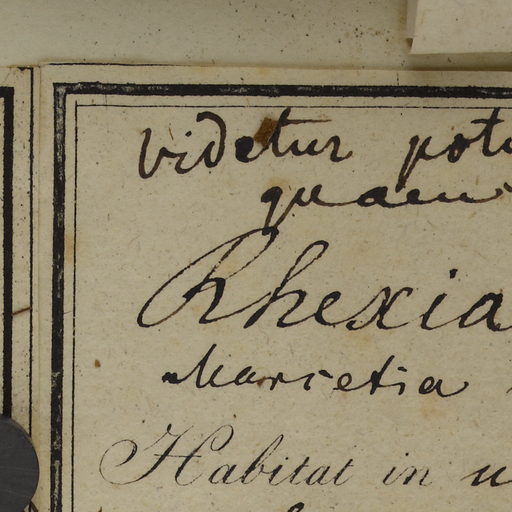 videtur potu
quaeu
Rhexia
Marcetia
Habitat in u